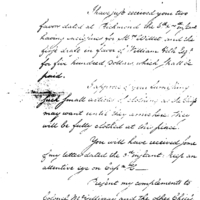 I have just received you two
favor dated at Richmond the 5th &
having assigned for Mr
first draft in favor of William Hill Esqr
for five hundred Dollars which shall be
paid.
I approve of your furnishing
such small articles of clothing as the Chiefs
may want until they come here. They
will be fully clothed at this place.
You will have received some
of my letter dated the 3d Instant. Keep an
attentive eye on Capt
Present my complements to
Colonel McGillivray and the other Chiefs